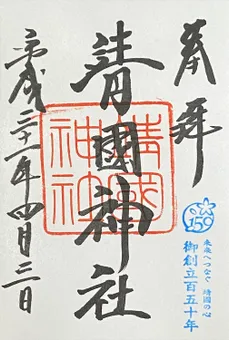 奉拝
靖國神社
靖國
神社
平成三十一年四月三日
150
来歳へつなぐ 靖國の心
御創立百五十年